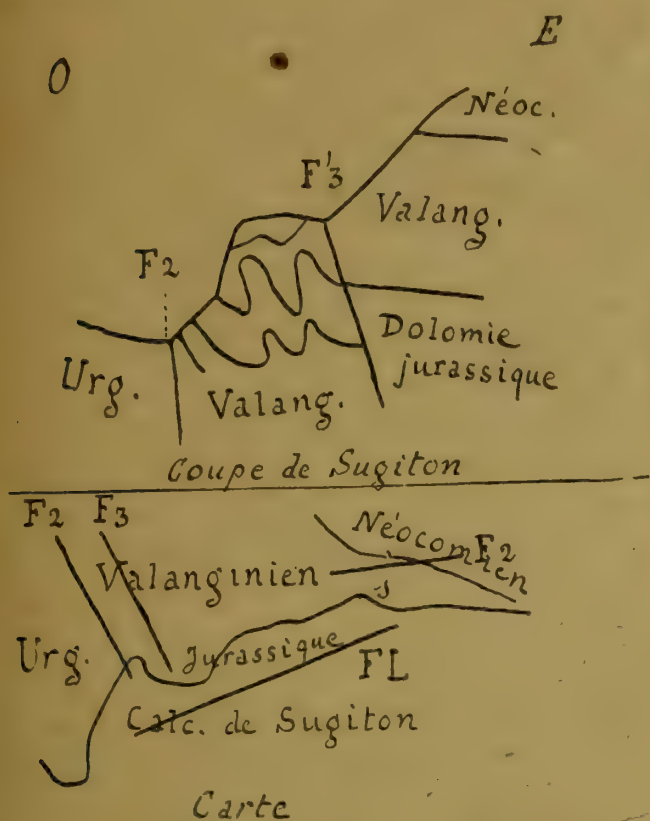 O
E
Néoc.
F'3
Valang.
F2
Dolomie
jurassique
Urg.
Valang.
Coupe de Sugiton
F2
F3
Néocomien
F2
Valanginien
Urg.
Jurassique
FL
Calc. de Sugiton
Carte